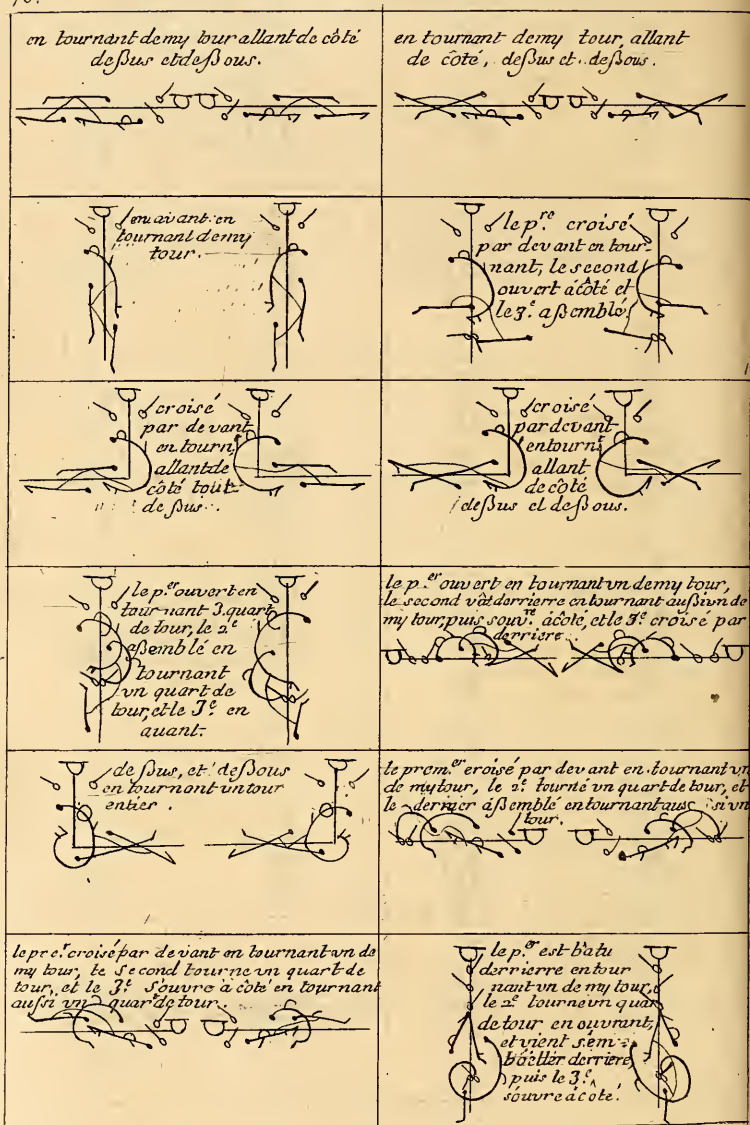 en tournant demy tour allant de côté
deßus et deßous.
en tournant demy tour, allant
de coté, deßus et deßous.
en avant en
tournant demy
tour.
le p.re croisé
par devant en tour-
nant, le second
ouvert à côté et
le 3.e aßemblé.
croisé
par devant
en tourn.
allant de
côté tout
deßus
croisé
par devant
en tourn.t
allant
de coté
deßus et deßous.
le p.er ouvert en
tournant 3. quart
de tour, le 2.e
aßemblé en
tournant
vn quart de
tour, et le 3.e en
auant.
le p.er ouvert en tournant vn demy tour,
le second vat derrierre en tournant außi vn de
my tour, puis souv.re àcoté, et le 3.e croisé par
derriere.
deßus, et deßous
en tournant vn tour
entier.
le prem.er croisé par devant en tournant vn
demy tour, le 2.e tourné vn quart de tour, et
le dernier aßemblé en tournant aussi vn
tour.
le pre.r croisé par devant en tournant vn de
my tour, le second tourne vn quart de
tour, et le 3.e s'ouvre à coté en tournant
aussi vn quar de tour.
le p.er est batu
derrierre en tour
nant vn demy tour,
le 2.e tourne vn quar
de tour en ouvrant,
et vient s'em-
boetter derriere,
puis le 3.e
s'ouvre à coté.